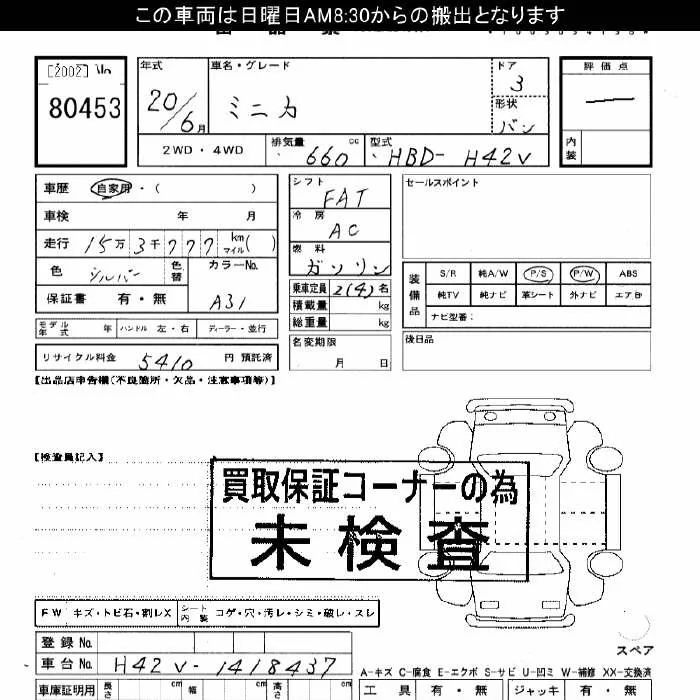 この車両は日曜日AM8:30からの搬出となります
[2002] No
80453
年式 車名・グレード ドア 評価点
20/6月 ミニカ 3
形状
バン
2WD・4WD 排気量 660 cc 型式 HBD- H42V 内装
車歴 自家用・( )
車検 年 月
走行 15万3千777 km マイル( )
色 シルバー 色替 カラーNo.
保証書 有・無 A31
シフト FAT
冷房 AC
燃料 ガソリン
乗車定員 2(4)名
積載量 kg
総重量 kg
セールスポイント
装備品 S/R 純A/W P/S P/W ABS
純TV 純ナビ 革シート 外ナビ エアB
ナビ型番:
モデル年式 年 ハンドル 左・右 ディーラー・並行
名変期限 月 日
後日品
リサイクル料金 5410 円 預託済
【出品店申告欄(不良箇所・欠品・注意事項等)】
【検査員記入】
買取保証コーナーの為
未検査
FW キズ・トビ石・割レX シート内装 コゲ・穴・汚レ・シミ・破レ・スレ
スペア
登録No.
車台No. H42V-1418437
A-キズ C-腐食 E-エクボ S-サビ U-凹ミ W-補修 XX-交換済
車庫証明用 長さ cm 幅 cm 高さ cm 工具 有・無 ジャッキ 有・無